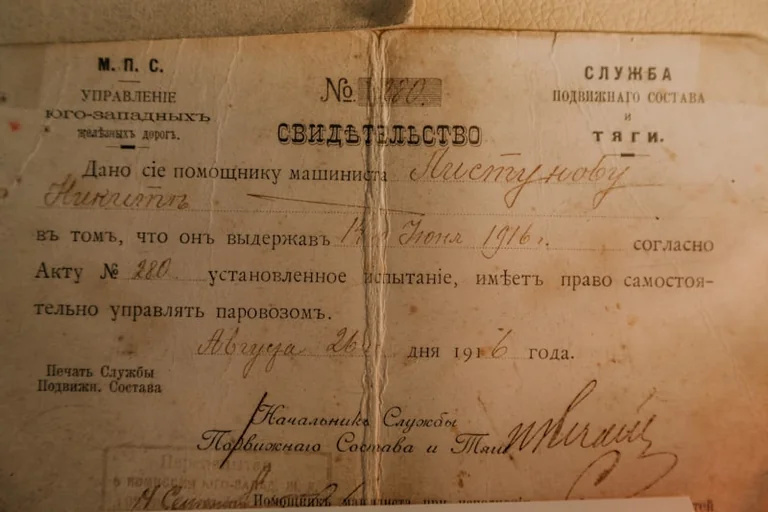 М. П. С.
УПРАВЛЕНІЕ
юго-западныхъ
желѣзныхъ дорогъ.
№ 280.
СЛУЖБА
ПОДВИЖНАГО СОСТАВА
И
ТЯГИ.
СВИДѢТЕЛЬСТВО
Дано сіе помощнику машиниста Пистунову
Никитѣ
въ томъ, что онъ выдержавъ Іюня 1916 г. согласно
Акту № 280 установленное испытаніе, имѣетъ право самостоя-
тельно управлять паровозомъ.
Августа 26 дня 1916 года.
Печать Службы
Подвижн. Состава
Начальникъ Службы
Подвижнаго Состава и Тяги
Помощникъ машиниста при исполненіи